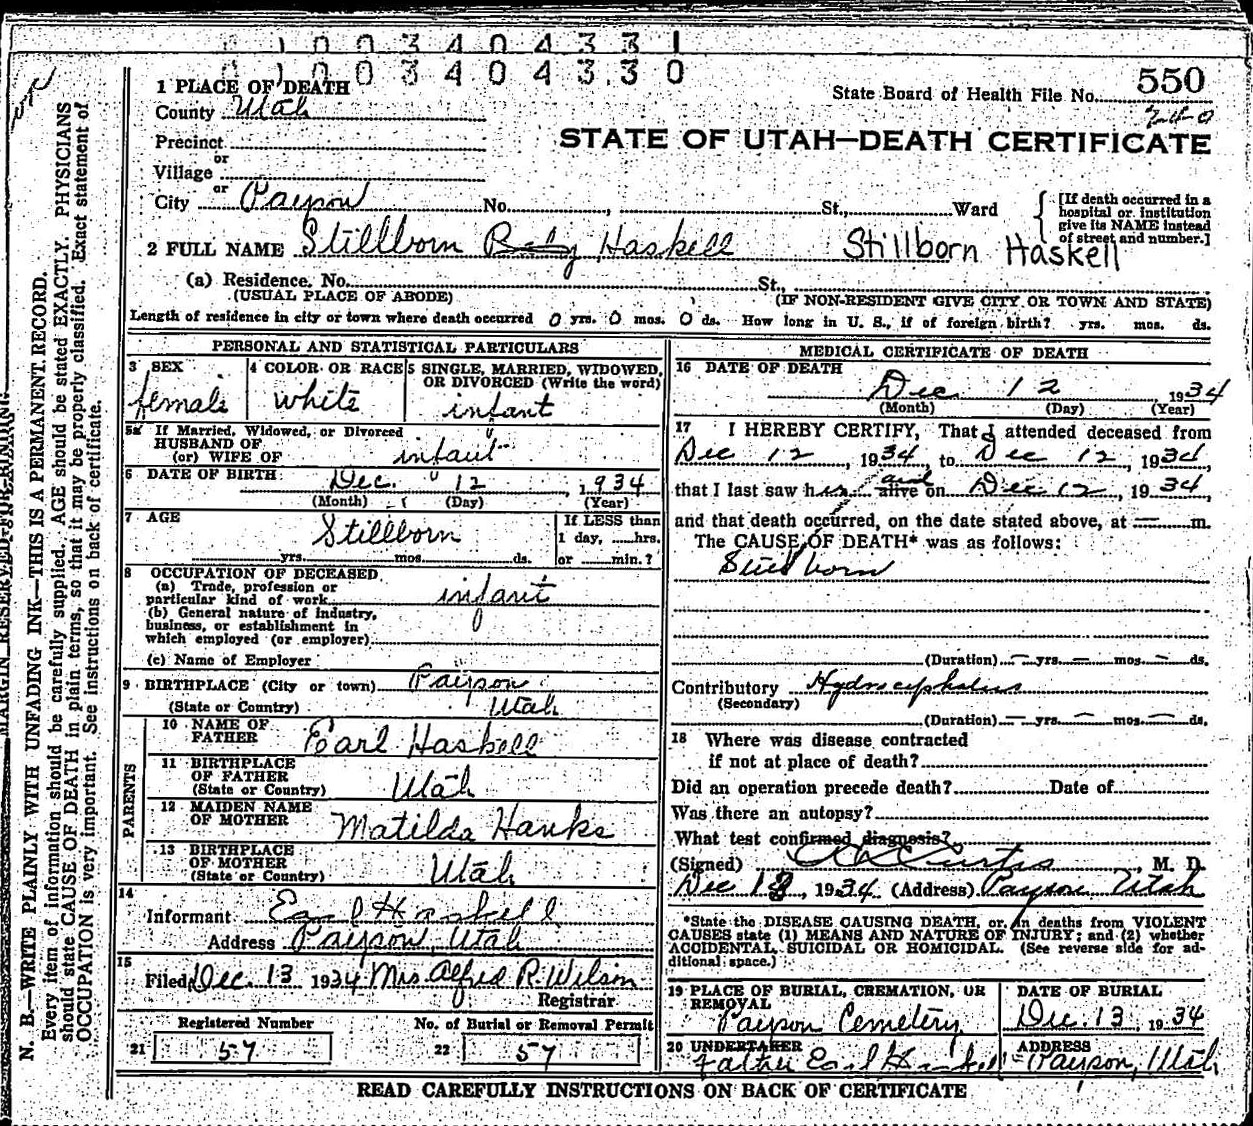 1 0 0 3 4 0 4 3 3 1
0 1 0 0 3 4 0 4 3 3 0
1 PLACE OF DEATH
State Board of Health File No. 550
County Utah
240
STATE OF UTAH—DEATH CERTIFICATE
Precinct
or
Village
or
City Payson No. , St., Ward
[If death occurred in a
hospital or institution
give its NAME instead
of street and number.]
2 FULL NAME Stillborn Baby Haskell Stillborn Haskell
(a) Residence. No. St.,
(USUAL PLACE OF ABODE) (IF NON-RESIDENT GIVE CITY OR TOWN AND STATE)
Length of residence in city or town where death occurred 0 yrs. 0 mos. 0 ds. How long in U. S., if of foreign birth? yrs. mos. ds.
PERSONAL AND STATISTICAL PARTICULARS
3 SEX
female
4 COLOR OR RACE
white
5 SINGLE, MARRIED, WIDOWED,
OR DIVORCED (Write the word)
infant
5a If Married, Widowed, or Divorced
HUSBAND OF
(or) WIFE OF infant
6 DATE OF BIRTH Dec. 12, 1934
(Month) (Day) (Year)
7 AGE
Stillborn
yrs. mos. ds.
If LESS than
1 day, hrs.
or min.?
8 OCCUPATION OF DECEASED
(a) Trade, profession or
particular kind of work infant
(b) General nature of industry,
business, or establishment in
which employed (or employer)
(c) Name of Employer
9 BIRTHPLACE (City or town) Payson
(State or Country) Utah
PARENTS
10 NAME OF
FATHER Earl Haskell
11 BIRTHPLACE
OF FATHER
(State or Country) Utah
12 MAIDEN NAME
OF MOTHER Matilda Hanks
13 BIRTHPLACE
OF MOTHER
(State or Country) Utah
14
Informant Earl Haskell
Address Payson, Utah
15
Filed Dec. 13 1934 Mrs. Alfred R. Wilson
Registrar
Registered Number
21 57
No. of Burial or Removal Permit
22 57
MEDICAL CERTIFICATE OF DEATH
16 DATE OF DEATH
Dec. 12, 1934
(Month) (Day) (Year)
17 I HEREBY CERTIFY, That I attended deceased from
Dec 12, 1934, to Dec 12, 1934,
that I last saw her alive on Dec 12, 1934,
and that death occurred, on the date stated above, at — m.
The CAUSE OF DEATH* was as follows:
Stillborn
(Duration) — yrs. — mos. — ds.
Contributory Hydrocephalus
(Secondary)
(Duration) — yrs. — mos. — ds.
18 Where was disease contracted
if not at place of death?
Did an operation precede death? Date of
Was there an autopsy?
What test confirmed diagnosis?
(Signed) Curtis, M. D.
Dec 13, 1934 (Address) Payson Utah
*State the DISEASE CAUSING DEATH, or, in deaths from VIOLENT
CAUSES state (1) MEANS AND NATURE OF INJURY; and (2) whether
ACCIDENTAL, SUICIDAL OR HOMICIDAL. (See reverse side for ad-
ditional space.)
19 PLACE OF BURIAL, CREMATION, OR
REMOVAL
Payson Cemetery
DATE OF BURIAL
Dec. 13, 1934
20 UNDERTAKER
Father Earl Haskell
ADDRESS
Payson, Utah
READ CAREFULLY INSTRUCTIONS ON BACK OF CERTIFICATE
MARGIN RESERVED FOR BINDING
N. B.—WRITE PLAINLY WITH UNFADING INK—THIS IS A PERMANENT RECORD.
Every item of information should be carefully supplied. AGE should be stated EXACTLY. PHYSICIANS
should state CAUSE OF DEATH in plain terms, so that it may be properly classified. Exact statement of
OCCUPATION is very important. See instructions on back of certificate.